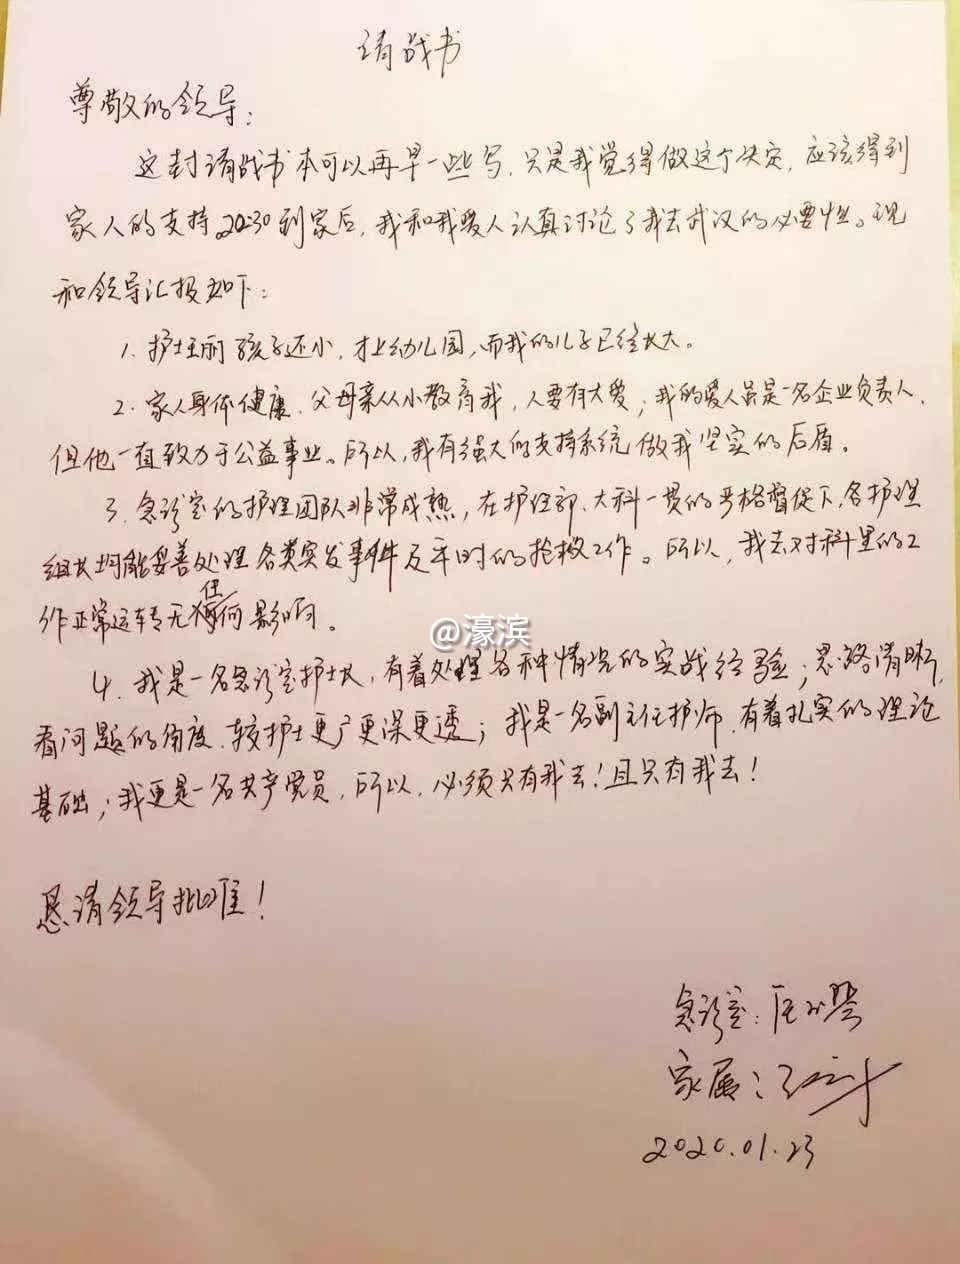 请战书
尊敬的领导：
这封请战书本可以再早一些写，只是我觉得做这个决定，应该得到
家人的支持。20:30到家后，我和我爱人认真讨论了我去武汉的必要性。现
和领导汇报如下：
1. 护士王丽孩子还小，才上幼儿园，而我的儿子已经长大。
2. 家人身体健康，父母亲从小教育我，人要有大爱；我的爱人虽是一名企业负责人，
但他一直致力于公益事业。所以，我有强大的支持系统做我坚实的后盾。
3. 急诊室的护理团队非常成熟，在护理部、大科一贯的严格督促下，各护理
组长均能妥善处理各类突发事件及平时的抢救工作。所以，我去对科里的工
作正常运转无任何影响。
@濠滨
4. 我是一名急诊室护士长，有着处理各种情况的实战经验；思路清晰，
看问题的角度，较护士更广更深更透；我是一名副主任护师，有着扎实的理论
基础；我更是一名共产党员，所以，必须只有我去！且只有我去！
恳请领导批准！
急诊室：
家属：
2020.01.23